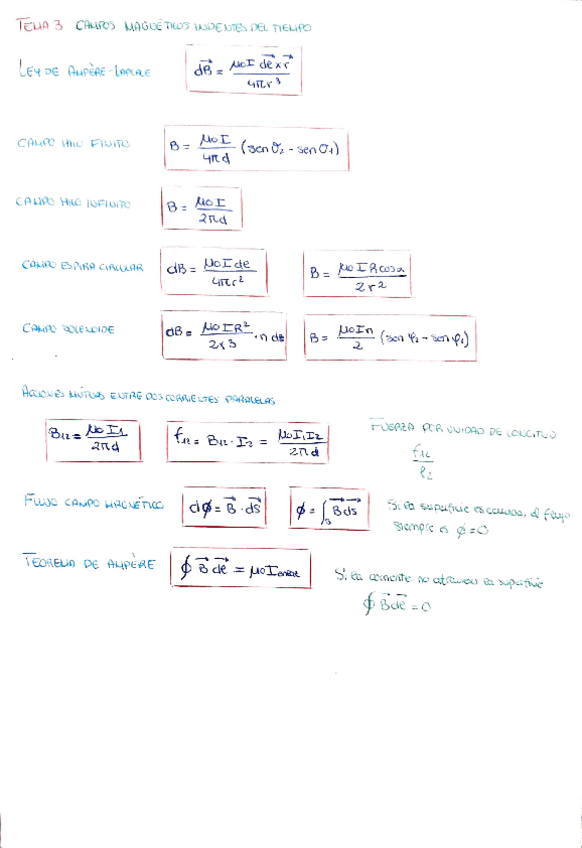 TEMA 3 CAMPOS MAGNÉTICOS INDENTES DEL TIEMPO
LEY DE AMPÈRE-LAPLACE dB⃗ = μ0 I dl⃗ x r⃗ / 4πr³
CAMPO HILO FINITO B = μ0 I / 4πd (sen σ2 - sen σ1)
CAMPO HILO INFINITO B = μ0 I / 2πd
CAMPO ESPIRA CIRCULAR dB = μ0 I dl / 4πr² B = μ0 I R cosα / 2r²
CAMPO SOLENOIDE dB = μ0 I R² / 2r³ · n ds B = μ0 I n / 2 (sen φ2 - sen φ1)
ACCIONES MUTUAS ENTRE DOS CORRIENTES PARALELAS
B12 = μ0 I1 / 2πd f12 = B12 · I2 = μ0 I1 I2 / 2πd FUERZA POR UNIDAD DE LONGITUD
f12 / l2
FLUJO CAMPO MAGNÉTICO dϕ = B⃗ · ds⃗ ϕ = ∫s B⃗ ds⃗ Si la superficie es cerrada, el flujo
siempre es ϕ = 0
TEOREMA DE AMPÈRE ∮ B⃗ dl⃗ = μ0 I Si la corriente no atraviesa la superficie
∮ B⃗ dl⃗ = 0